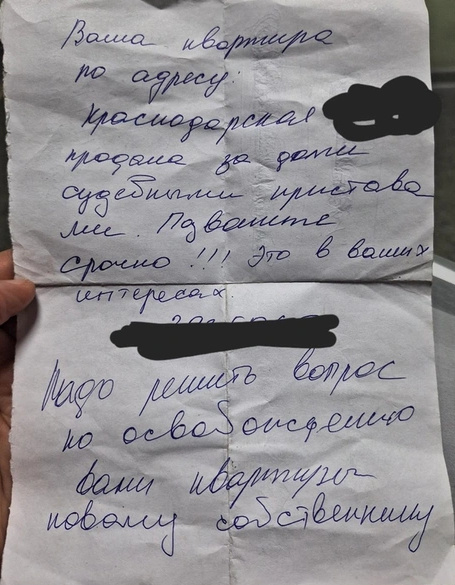 Ваша квартира
по адресу:
Краснодарская
продана за долги
судебными пристава
ми. Позвоните
срочно !!! Это в ваших
интересах
Надо решить вопрос
по освобождению
вами квартиры
новому собственнику